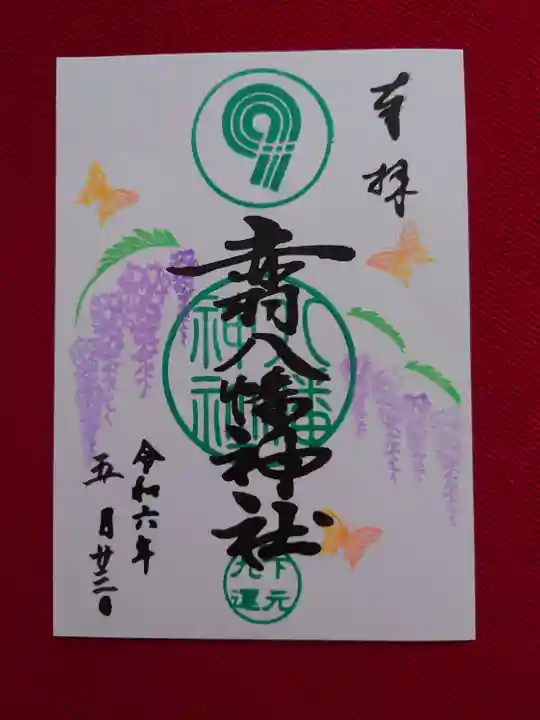 奉拝
赤羽八幡神社
八幡
神社
下元
九運
令和六年
五月廿三日